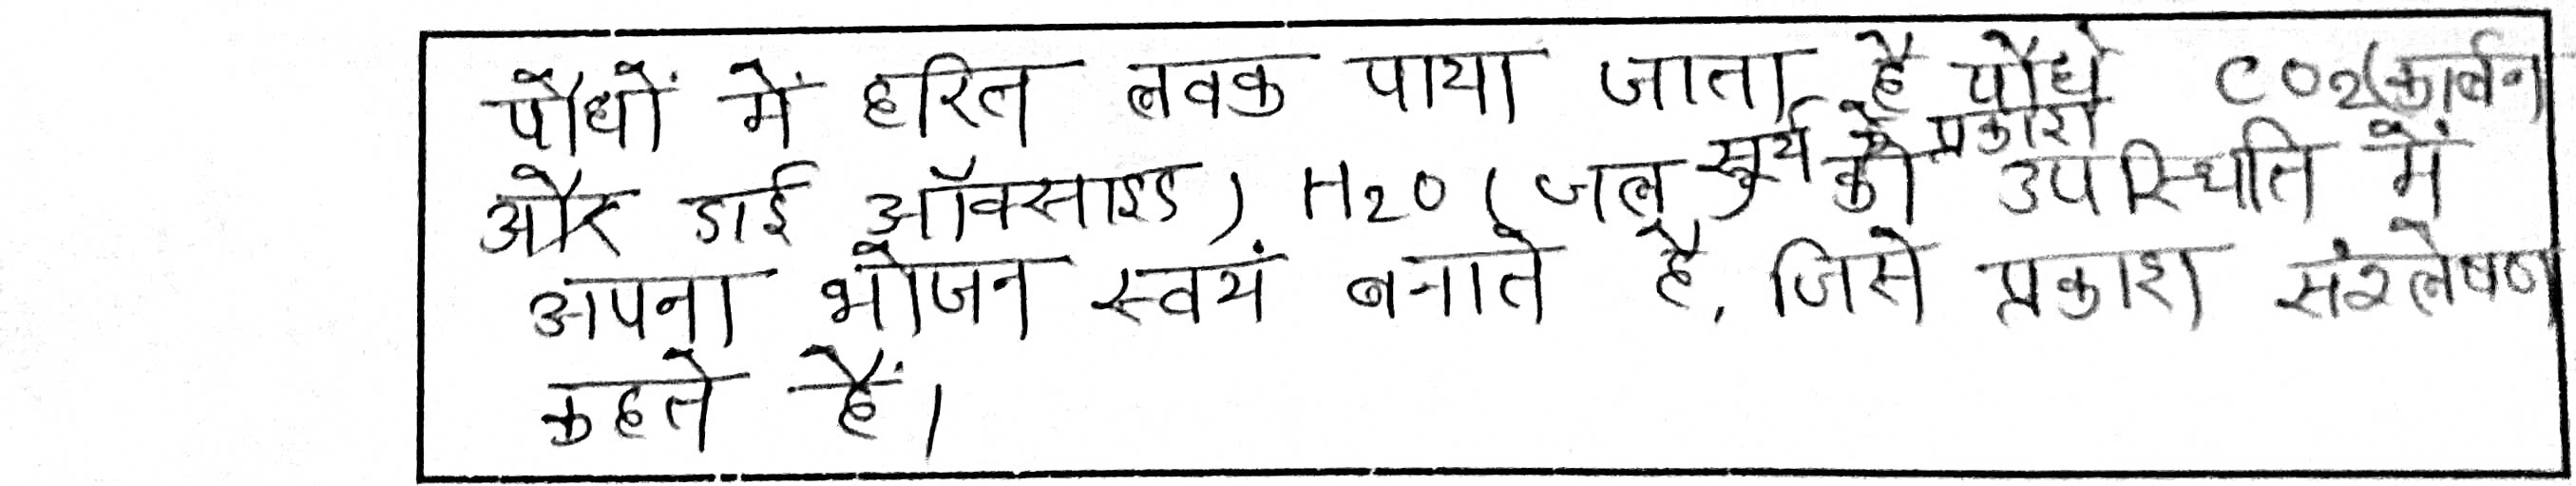 पौधों में हरित लवक पाया जाता है पौधे CO2(कार्बन
सूर्य के प्रकाश
और डाई ऑक्साइड) H2O (जल की उपस्थिति में
अपना भोजन स्वयं बनाते है, जिसे प्रकाश संश्लेषण
कहते हैं।